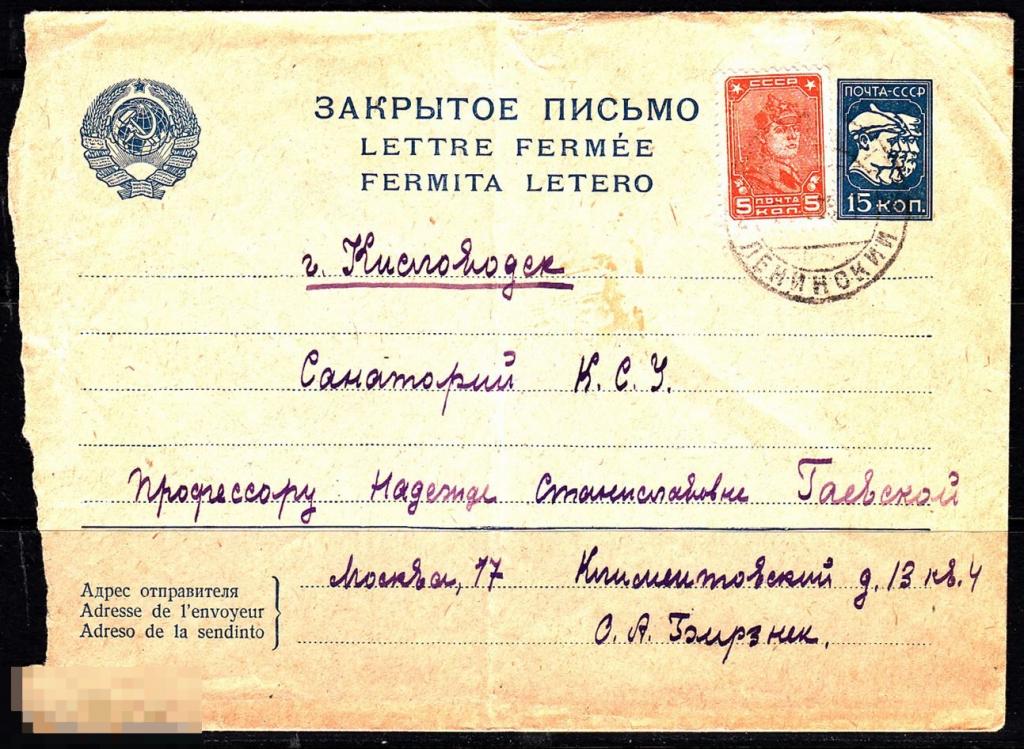 ЗАКРЫТОЕ ПИСЬМО
LETTRE FERMÉE
FERMITA LETERO
СССР
5 ПОЧТА КОП. 5
ПОЧТА-СССР
15 КОП.
ЛЕНИНСКИЙ
г. Кисловодск
Санаторий К. С. У.
Профессору Надежде Станиславовне Гаевской
Адрес отправителя
Adresse de l'envoyeur
Adreso de la sendinto
Москва, 17 Климентовский д. 13 кв. 4
О. А. Бирзнек.